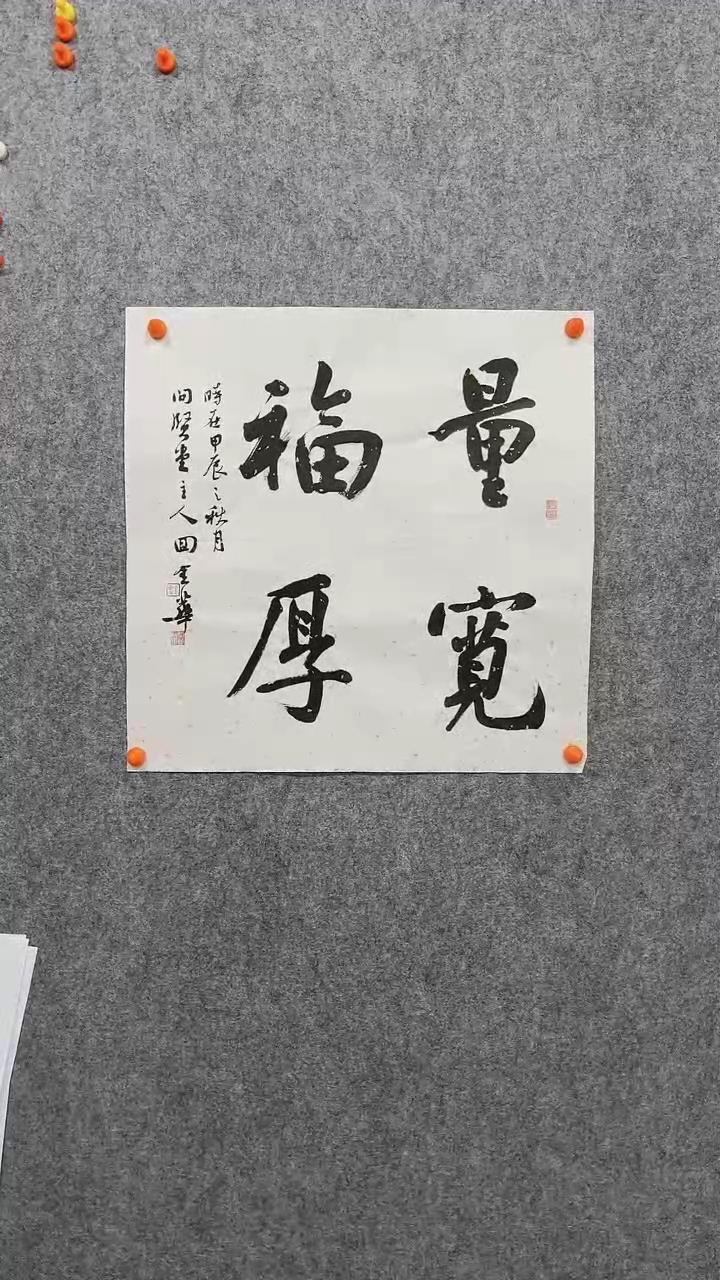 量寬
福厚
時在甲辰之秋月
問賢堂主人田金華